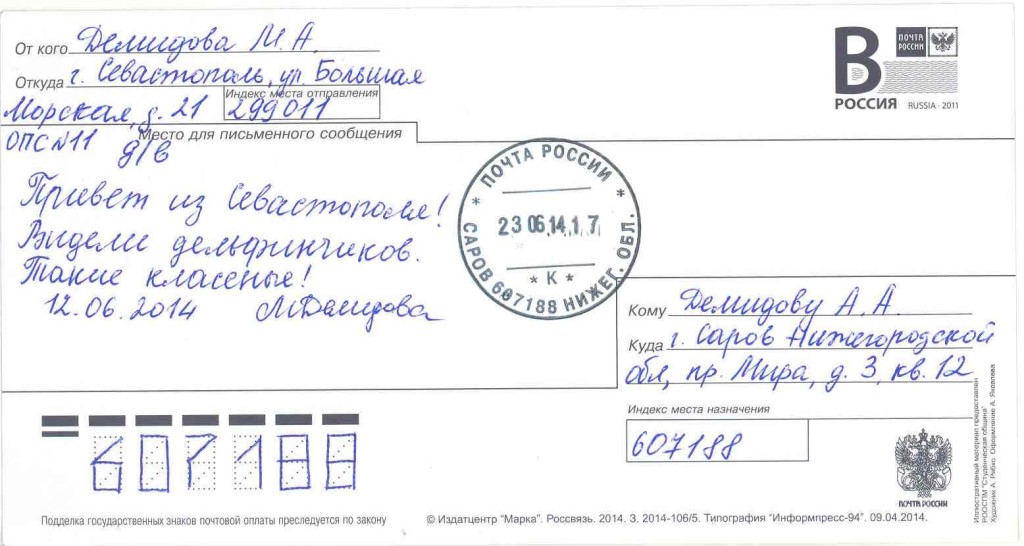 От кого Демидова М. А.
Откуда г. Севастополь, ул. Большая
Морская, д. 21
Индекс места отправления
299011
ОПС №11 д/в
Место для письменного сообщения
Привет из Севастополя!
Видели дельфинчиков.
Такие классные!
12.06.2014 МДемидова
ПОЧТА РОССИИ
23 06.14.1 7
* К *
САРОВ 607188 НИЖЕГ. ОБЛ.
B
РОССИЯ RUSSIA · 2011
ПОЧТА
РОССИИ
Кому Демидову А. А.
Куда г. Саров Нижегородской
обл, пр. Мира, д. 3, кв. 12
Индекс места назначения
607188
607188
ПОЧТА РОССИИ
Иллюстративный материал предоставлен
РООСПМ "Студенческая община"
Художник А. Рябко. Оформление А. Яковлева
Подделка государственных знаков почтовой оплаты преследуется по закону
© Издатцентр "Марка". Россвязь. 2014. З. 2014-106/5. Типография "Информпресс-94". 09.04.2014.